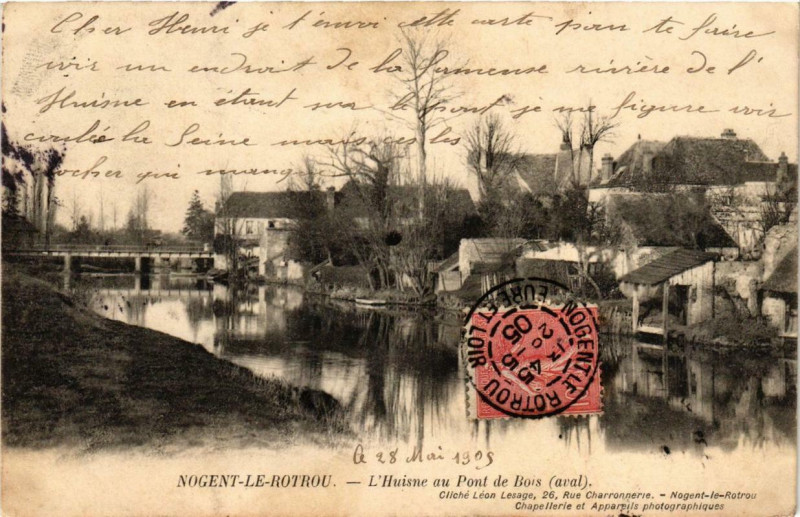 Cher Henri je t'envoi cette carte pour te faire
voir un endroit De la fameuse rivière De l'
Huisne en étant sur le pont je me figure voir
coulé la Seine mais les
rocher qui manq
NOGENT-LE-ROTROU
EURE-ET-LOIR
13 45
20 -5
05
Le 28 Mai 1905
NOGENT-LE-ROTROU. — L'Huisne au Pont de Bois (aval).
Cliché Léon Lesage, 26, Rue Charronnerie. - Nogent-le-Rotrou
Chapellerie et Appareils photographiques